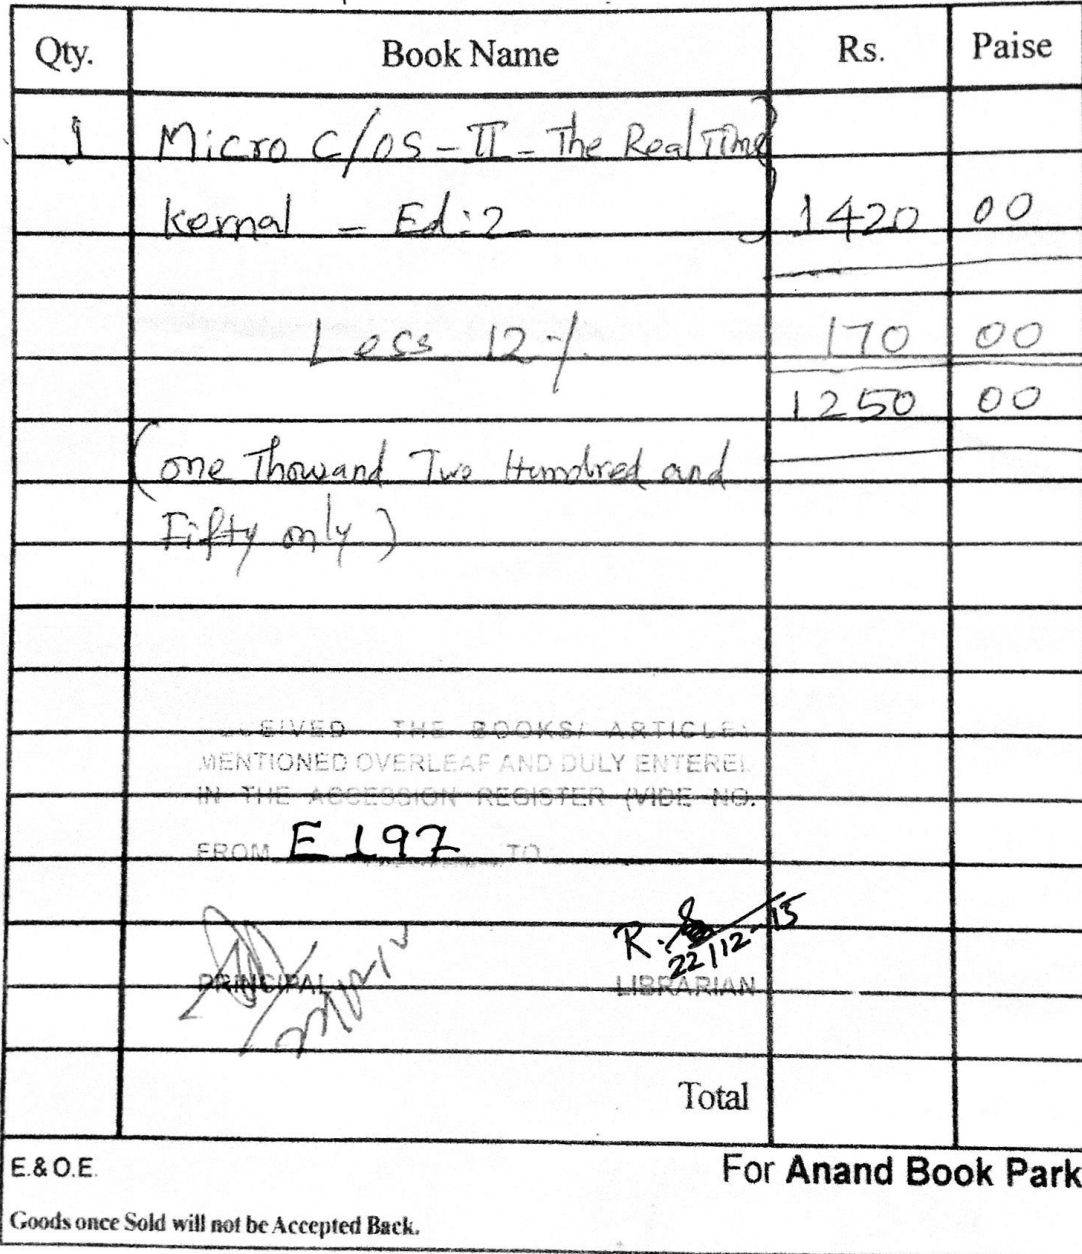 Qty. Book Name Rs. Paise
1 Micro C/OS-II- The Real Time
kernal - Ed:2 1420 00
Less 12% 170 00
1250 00
(one Thousand Two Hundred and
Fifty only)
THE BOOKS/ ARTICLES
MENTIONED OVERLEAF AND DULY ENTERED
IN THE ACCESSION REGISTER (VIDE NO.
FROM E 197 TO
R.
22/12-15
PRINCIPAL LIBRARIAN
Total
E.&O.E. For Anand Book Park
Goods once Sold will not be Accepted Back.